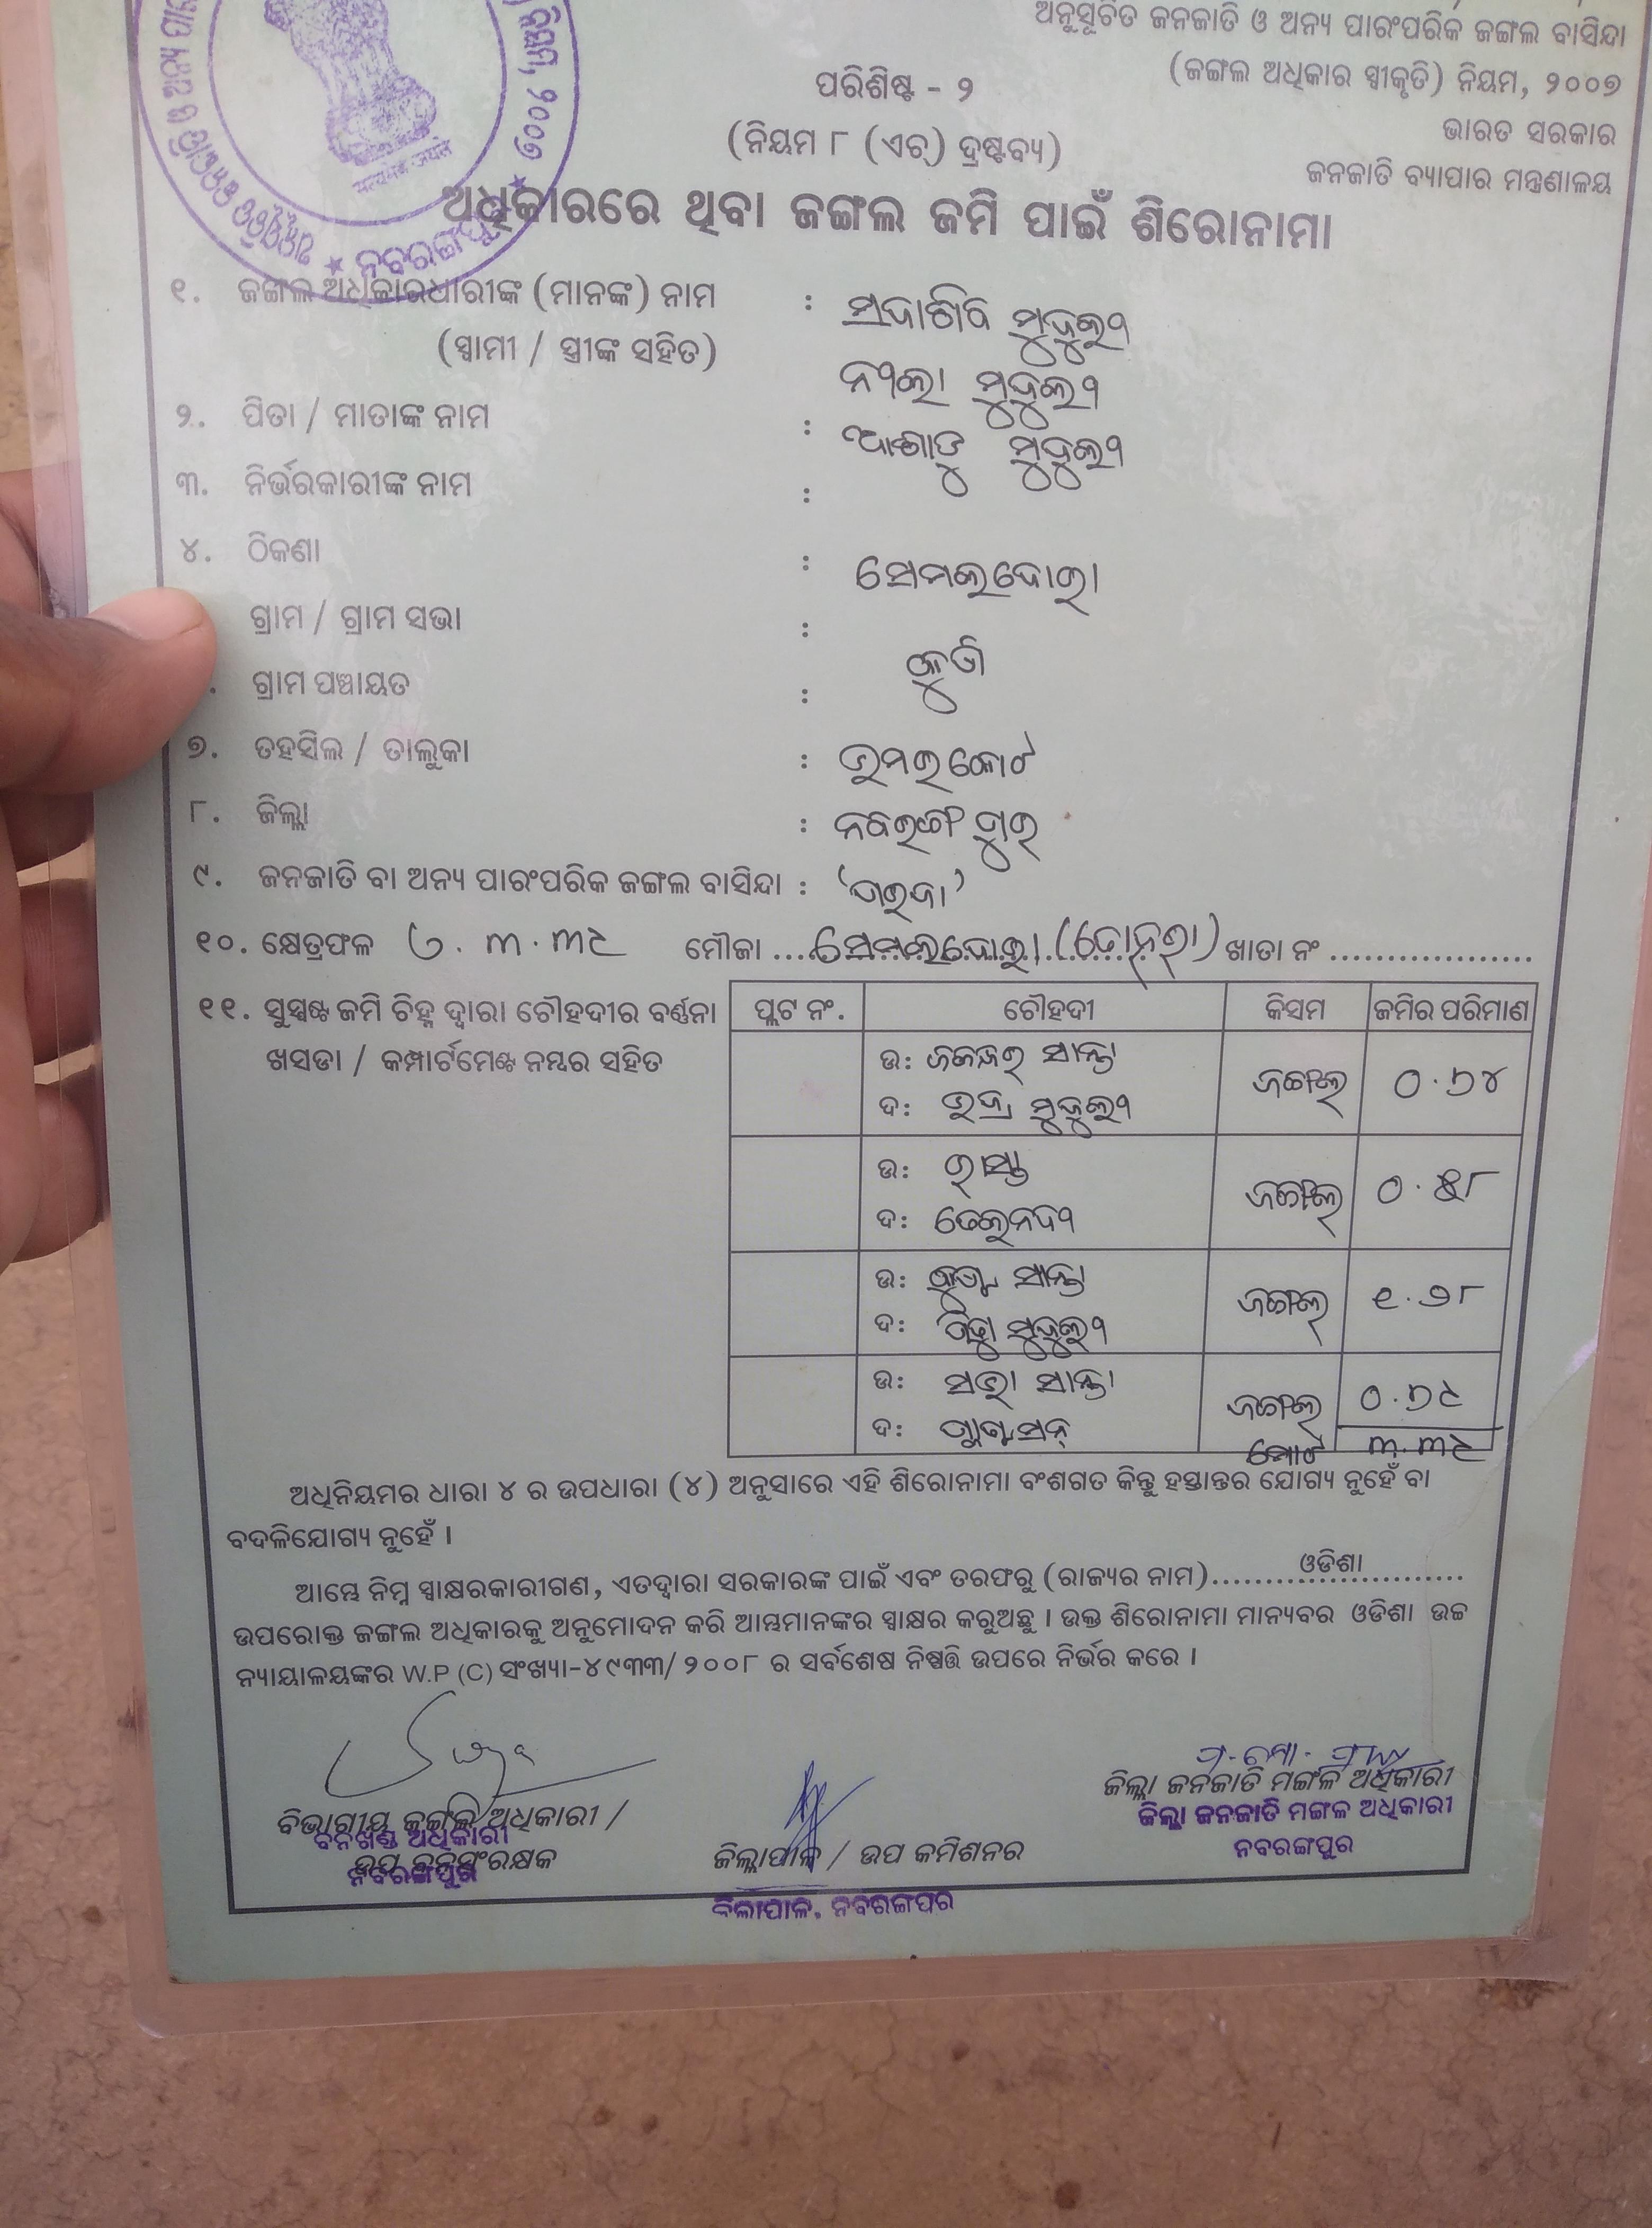 ଅନୁସୂଚିତ ଜନଜାତି ଓ ଅନ୍ୟ ପାରଂପରିକ ଜଙ୍ଗଲ ବାସିନ୍ଦା
(ଜଙ୍ଗଲ ଅଧିକାର ସ୍ୱୀକୃତି) ନିୟମ, ୨୦୦୭
ଭାରତ ସରକାର
ଜନଜାତି ବ୍ୟାପାର ମନ୍ତ୍ରଣାଳୟ
ପରିଶିଷ୍ଟ - ୨
(ନିୟମ ୮ (ଏଚ୍) ଦ୍ରଷ୍ଟବ୍ୟ)
ଅଧିକାରରେ ଥିବା ଜଙ୍ଗଲ ଜମି ପାଇଁ ଶିରୋନାମା
ନବରଙ୍ଗପୁର
୧. ଜଙ୍ଗଲ ଅଧିକାରଧାରୀଙ୍କ (ମାନଙ୍କ) ନାମ : ସଦାଶିବ ମୁଦୁଲି
(ସ୍ୱାମୀ / ସ୍ତ୍ରୀଙ୍କ ସହିତ) ନୀଳା ମୁଦୁଲି
୨. ପିତା / ମାତାଙ୍କ ନାମ : ମୁଦୁଲି
୩. ନିର୍ଭରକାରୀଙ୍କ ନାମ :
୪. ଠିକଣା : ସେମଲଦୋରା
ଗ୍ରାମ / ଗ୍ରାମ ସଭା :
. ଗ୍ରାମ ପଞ୍ଚାୟତ :
୭. ତହସିଲ / ତାଲୁକା : ଉମରକୋଟ
୮. ଜିଲ୍ଲା : ନବରଙ୍ଗପୁର
୯. ଜନଜାତି ବା ଅନ୍ୟ ପାରଂପରିକ ଜଙ୍ଗଲ ବାସିନ୍ଦା :
୧୦. କ୍ଷେତ୍ରଫଳ ୩.୩୫ ମୌଜା ... ସେମଲଦୋରା ... ଖାତା ନଂ ..................
୧୧. ସୁସ୍ପଷ୍ଟ ଜମି ଚିହ୍ନ ଦ୍ୱାରା ଚୌହଦୀର ବର୍ଣ୍ଣନା
ଖସଡା / କମ୍ପାର୍ଟମେଣ୍ଟ ନମ୍ବର ସହିତ
ପ୍ଲଟ ନଂ. ଚୌହଦୀ କିସମ ଜମିର ପରିମାଣ
ଉ: ସାନ୍ତା ଜଙ୍ଗଲ ୦.୭୪
ଦ: ମୁଦୁଲି
ଉ: ରାସ୍ତା ଜଙ୍ଗଲ
ଦ: ତେଲନଦୀ
ଉ: ସାନ୍ତା ଜଙ୍ଗଲ ୧.୨୮
ଦ: ମୁଦୁଲି
ଉ: ସାନ୍ତା ଜଙ୍ଗଲ ୦.୭୫
ଦ:
ମୋଟ ୩.୩୫
ଅଧିନିୟମର ଧାରା ୪ ର ଉପଧାରା (୪) ଅନୁସାରେ ଏହି ଶିରୋନାମା ବଂଶଗତ କିନ୍ତୁ ହସ୍ତାନ୍ତର ଯୋଗ୍ୟ ନୁହେଁ ବା
ବଦଳିଯୋଗ୍ୟ ନୁହେଁ ।
ଆମ୍ଭେ ନିମ୍ନ ସ୍ୱାକ୍ଷରକାରୀଗଣ, ଏତଦ୍ୱାରା ସରକାରଙ୍କ ପାଇଁ ଏବଂ ତରଫରୁ (ରାଜ୍ୟର ନାମ)......... ଓଡିଶା .........
ଉପରୋକ୍ତ ଜଙ୍ଗଲ ଅଧିକାରକୁ ଅନୁମୋଦନ କରି ଆମ୍ଭମାନଙ୍କର ସ୍ୱାକ୍ଷର କରୁଅଛୁ । ଉକ୍ତ ଶିରୋନାମା ମାନ୍ୟବର ଓଡିଶା ଉଚ୍ଚ
ନ୍ୟାୟାଳୟଙ୍କର W.P (C) ସଂଖ୍ୟା-୪୯୩୩/୨୦୦୮ ର ସର୍ବଶେଷ ନିଷ୍ପତ୍ତି ଉପରେ ନିର୍ଭର କରେ ।
ବିଭାଗୀୟ ଜଙ୍ଗଲ ଅଧିକାରୀ /
ବନଖଣ୍ଡ ଅଧିକାରୀ
ଉପ ବନସଂରକ୍ଷକ
ନବରଙ୍ଗପୁର
ଜିଲ୍ଲାପାଳ / ଉପ କମିଶନର
ଜିଲ୍ଲାପାଳ, ନବରଙ୍ଗପୁର
ଜିଲ୍ଲା ଜନଜାତି ମଙ୍ଗଳ ଅଧିକାରୀ
ଜିଲ୍ଲା ଜନଜାତି ମଙ୍ଗଳ ଅଧିକାରୀ
ନବରଙ୍ଗପୁର